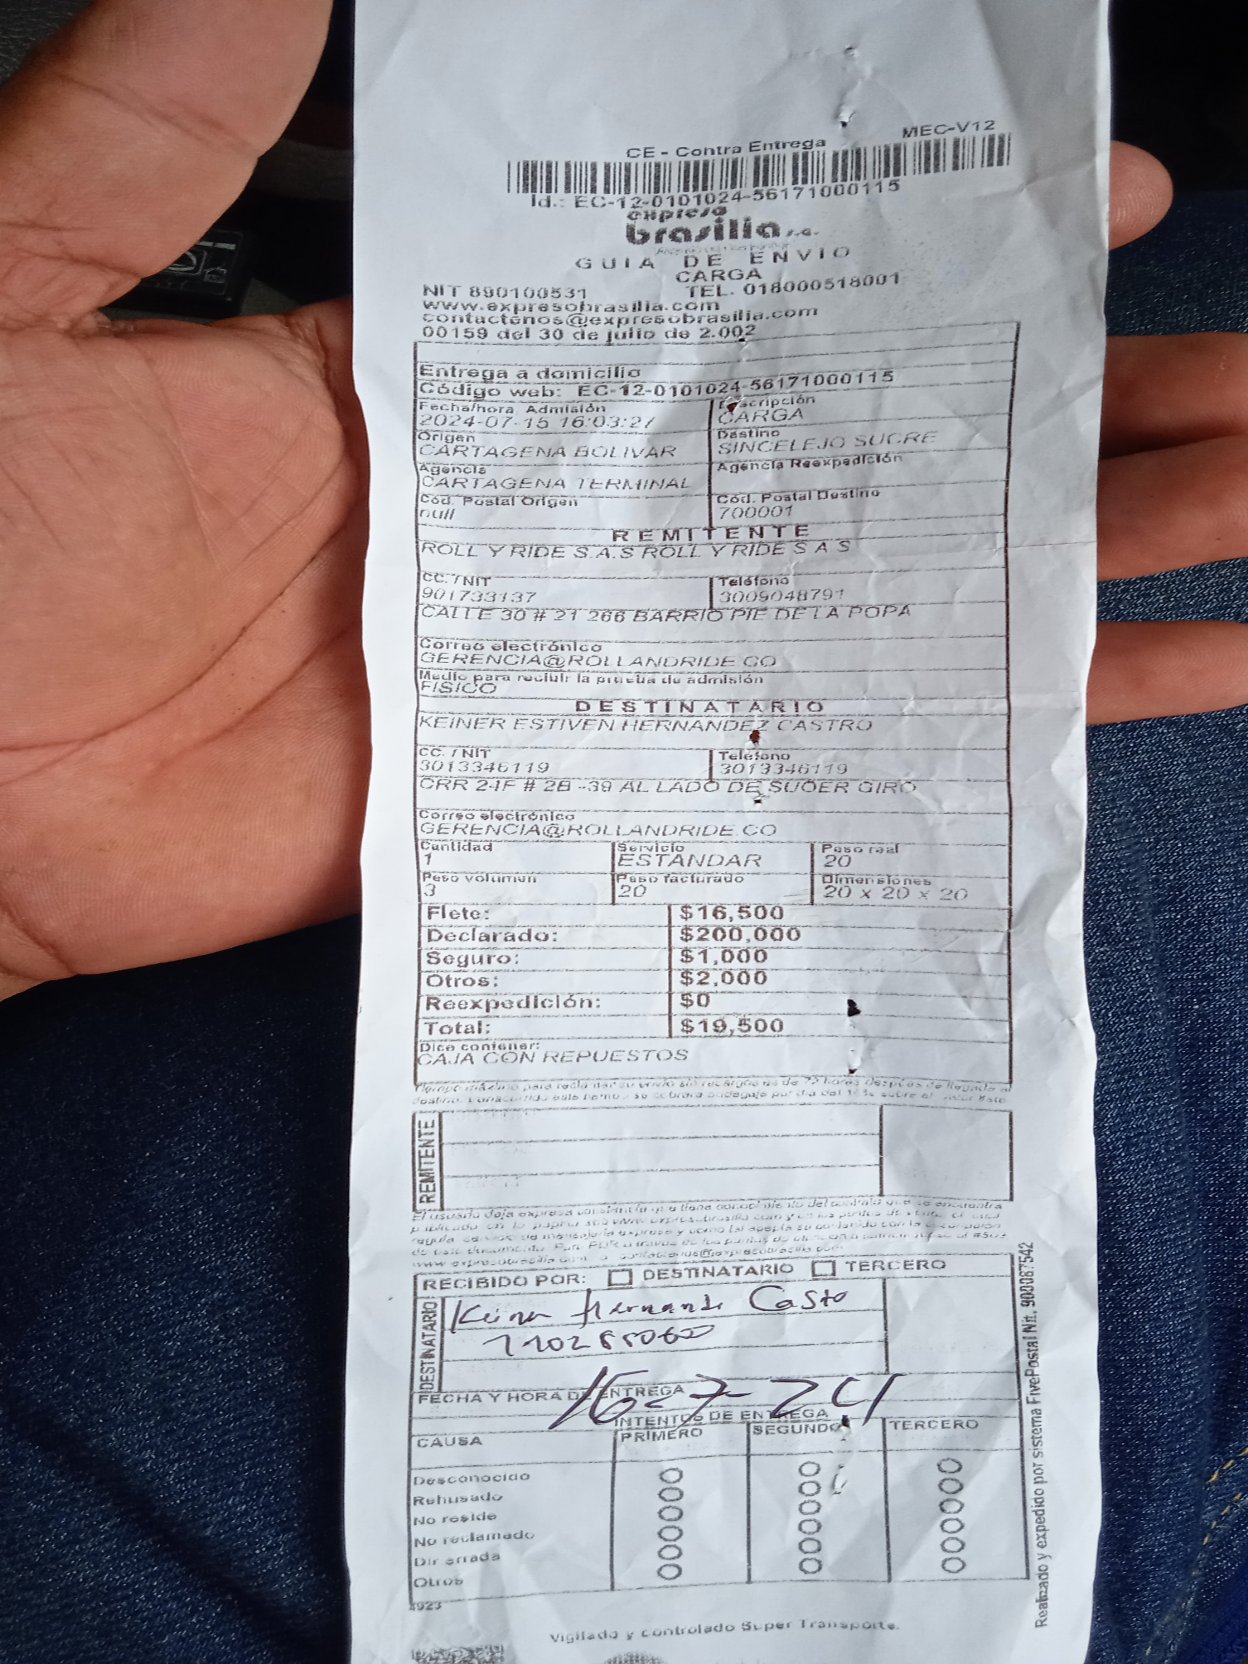 CE - Contra Entrega MEC-V12
Id.: EC-12-0101024-56171000115
expreso
brasilia s.a.
GUIA DE ENVIO
CARGA
NIT 890100531 TEL. 018000518001
www.expresobrasilia.com
contactenos@expresobrasilia.com
00159 del 30 de julio de 2.002
Entrega a domicilio
Código web: EC-12-0101024-56171000115
Fecha/hora Admisión Descripción
2024-07-15 16:03:27 CARGA
Origen Destino
CARTAGENA BOLIVAR SINCELEJO SUCRE
Agencia Agencia Reexpedición
CARTAGENA TERMINAL
Cód. Postal Origen Cód. Postal Destino
null 700001
REMITENTE
ROLL Y RIDE S.A.S ROLL Y RIDE S A S
CC. / NIT Teléfono
901733137 3009048791
CALLE 30 # 21 266 BARRIO PIE DE LA POPA
Correo electrónico
GERENCIA@ROLLANDRIDE.CO
Medio para recibir la prueba de admisión
FISICO
DESTINATARIO
KEINER ESTIVEN HERNANDEZ CASTRO
CC. / NIT Teléfono
3013346119 3013346119
CRR 24F # 28 -39 AL LADO DE SUOER GIRO
Correo electrónico
GERENCIA@ROLLANDRIDE.CO
Cantidad Servicio Peso real
1 ESTANDAR 20
Peso volumen Peso facturado Dimensiones
3 20 20 x 20 x 20
Flete: $16,500
Declarado: $200,000
Seguro: $1,000
Otros: $2,000
Reexpedición: $0
Total: $19,500
Dice contener:
CAJA CON REPUESTOS
Tiempo máximo para reclamar su envío sin recargo es de 72 horas después de llegado al
REMITENTE
RECIBIDO POR: DESTINATARIO TERCERO
DESTINATARIO
Hernande Casto
FECHA Y HORA DE ENTREGA
16-7-24
INTENTOS DE ENTREGA
CAUSA PRIMERO SEGUNDO TERCERO
Desconocido
Rehusado
No reside
No reclamado
Dir errada
Otros
4923
Vigilado y controlado Super Transporte.
Realizado y expedido por sistema FivePostal Nit. 900087542